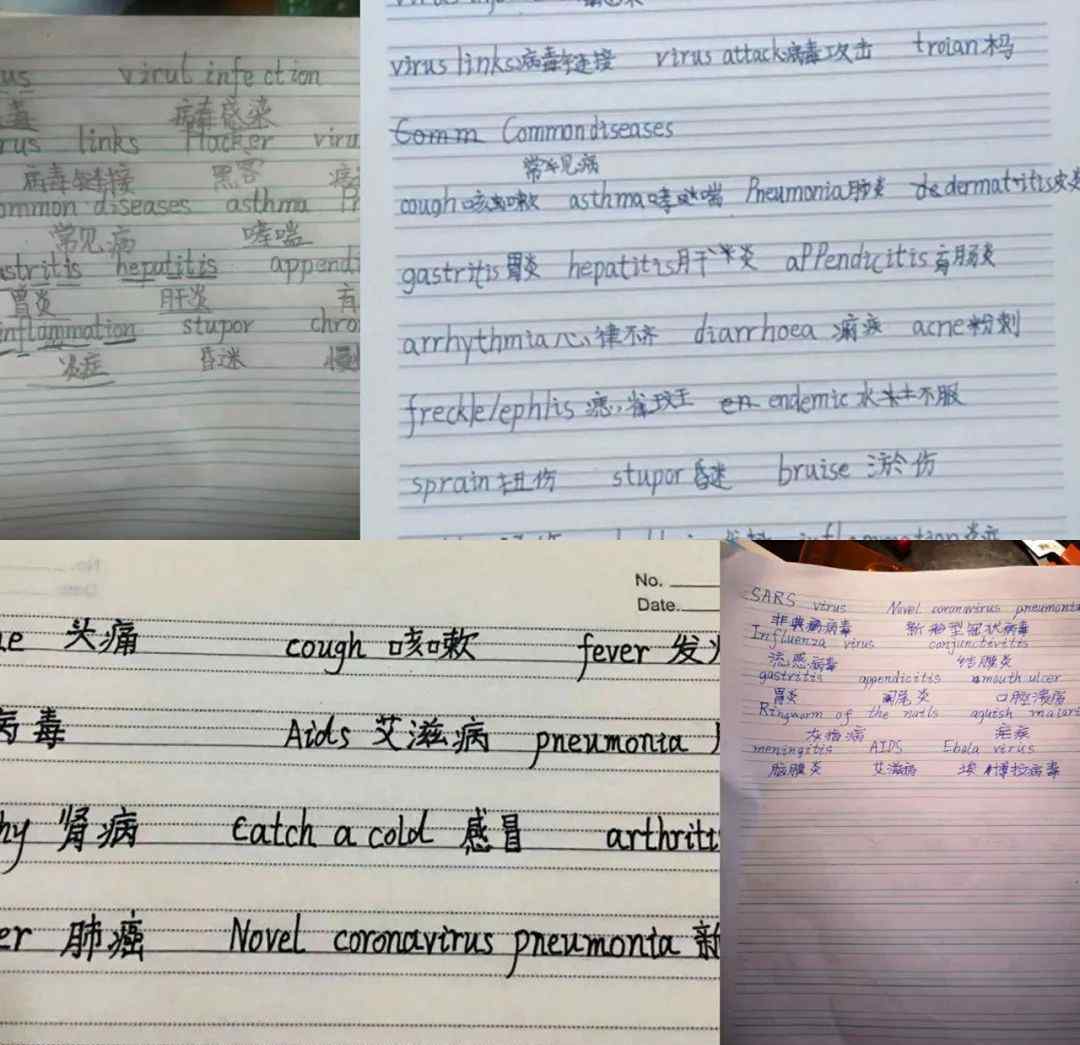 virul infection
病毒感染
links Hacker
病毒链接 黑客
common diseases asthma
常见病 哮喘
gastritis hepatitis
胃炎 肝炎
inflammation stupor
炎症 昏迷
virus links病毒链接 virus attack病毒攻击 troian木马
Comm Common diseases
常见病
cough咳嗽 asthma哮喘 Pneumonia肺炎 de dermatritis皮炎
gastritis胃炎 hepatitis肝炎 appendicitis盲肠炎
arrhythmia心律不齐 diarrhoea acne粉刺
freckle/ephlis 雀斑 en endemic水土不服
sprain扭伤 stupor昏迷 bruise淤伤
No.
Date.
头痛 cough 咳嗽 fever 发
病毒 Aids 艾滋病 pneumonia
hy 肾病 Catch a cold 感冒 arthriti
er 肺癌 Novel coronavirus pneumonia 新
SARS virus Novel coronavirus pneumonia
非典病毒 新型冠状病毒
Influenza virus conjunctivitis
流感病毒 结膜炎
gastritis appendicitis mouth ulcer
胃炎 阑尾炎 口腔溃疡
Ringworm of the nails aguish malari
灰指病 疟疾
meningitis AIDS Ebola virus
脑膜炎 艾滋病 埃博拉病毒